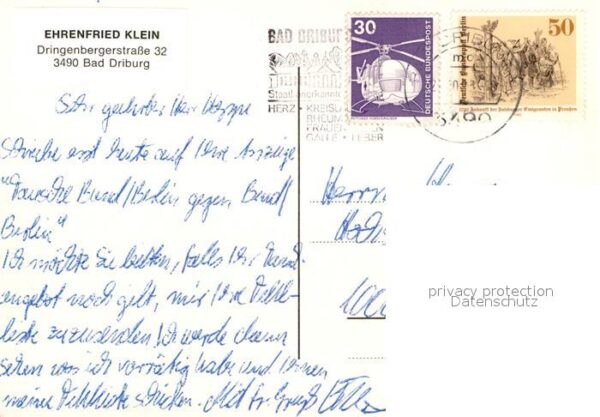 EHRENFRIED KLEIN
Dringenbergerstraße 32
3490 Bad Driburg
BAD DRIBURG
HERZ - KREISL
RHEUM
FRAUEN
GALLE - LEBER
30
DEUTSCHE BUNDESPOST
50
Deutsche Bundespost Berlin
3490
Sehr geehrter Herr
Schreibe erst heute auf Ihre Anzeige
"Tausche Bund/Berlin gegen Bund/
Berlin"
Ich möchte Sie bitten, falls Ihr Tausch
angebot noch gilt, mir Ihre Fehl-
liste zuzusenden. Ich werde dann
sehen was ich vorrätig habe und Ihnen
meine Fehlliste schicken. Mit fr. Gruß
Herrn
privacy protection
Datenschutz